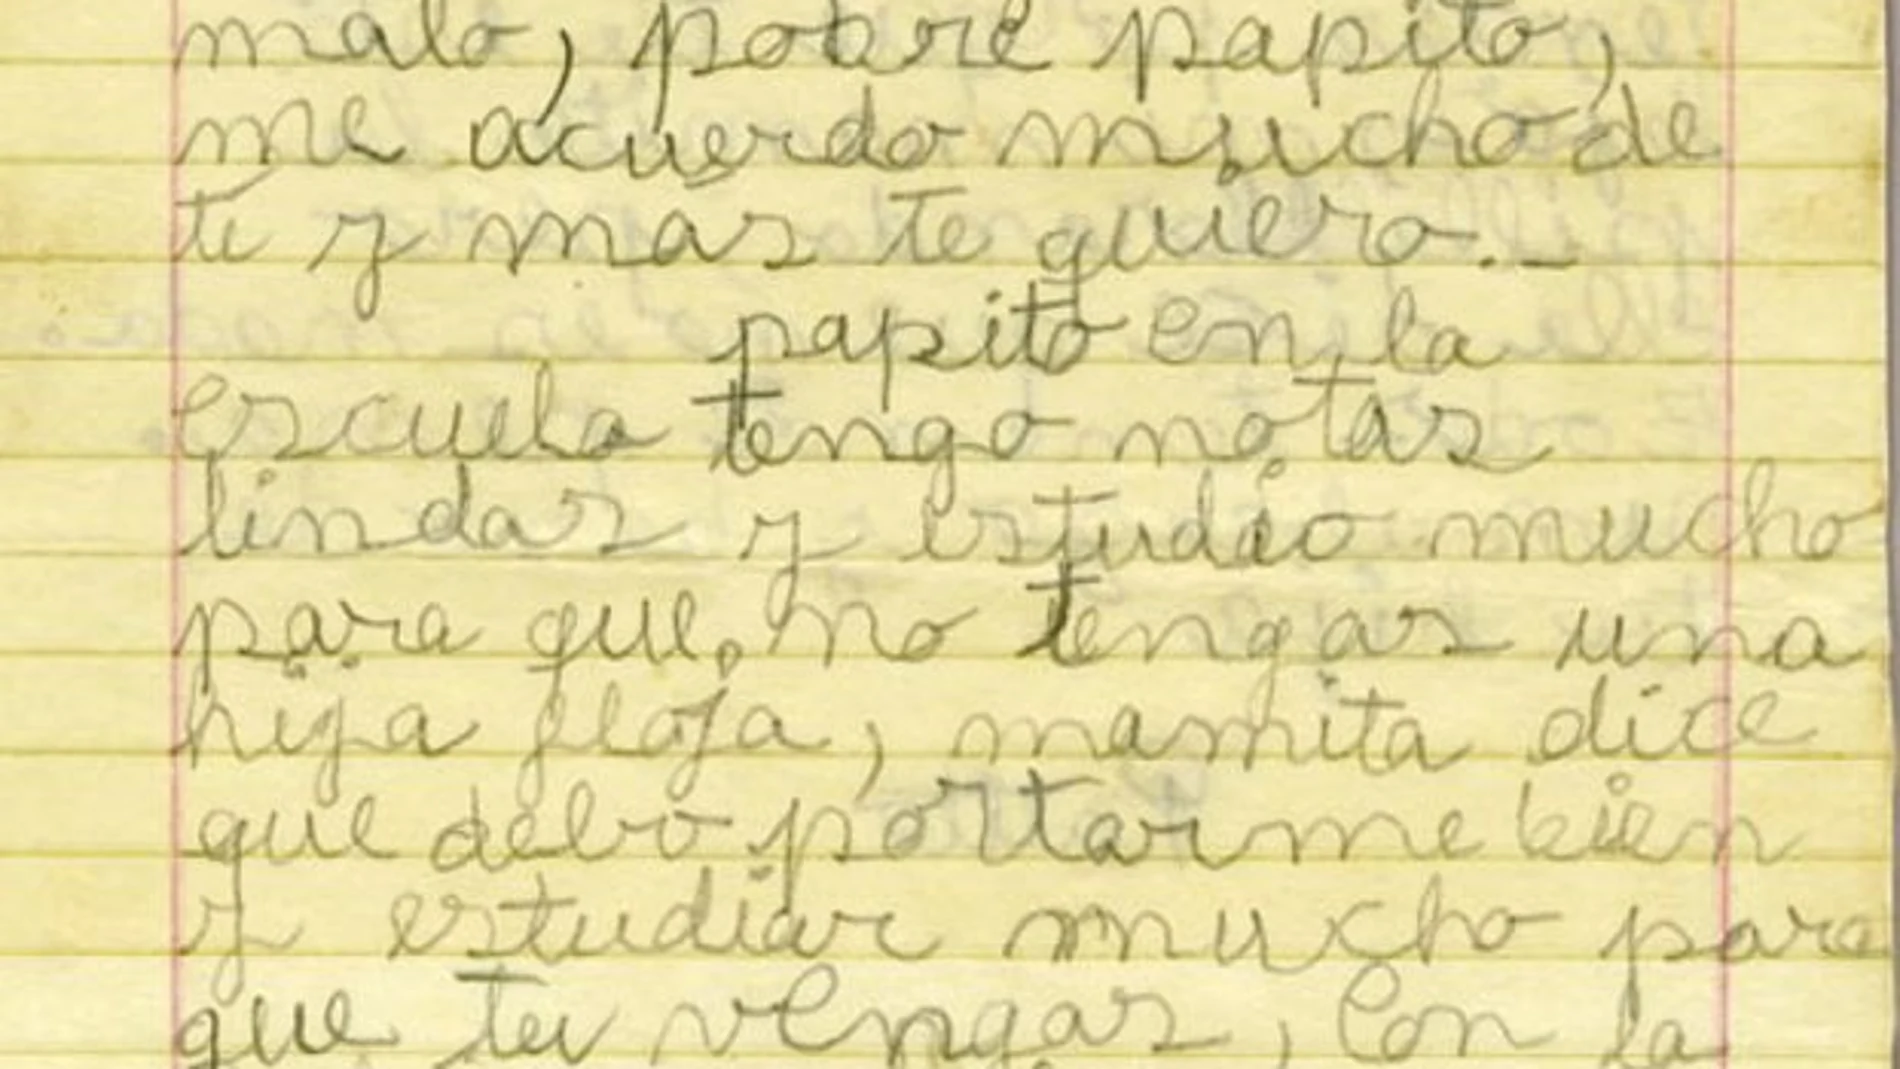 malo, pobre papito,
me acuerdo mucho de
ti y mas te quiero._
papito en la
escuela tengo notas
lindas y estudio mucho
para que no tengas una
hija floja, mamita dice
que debo portarme bien
y estudiar mucho para
que tu vengas, con la